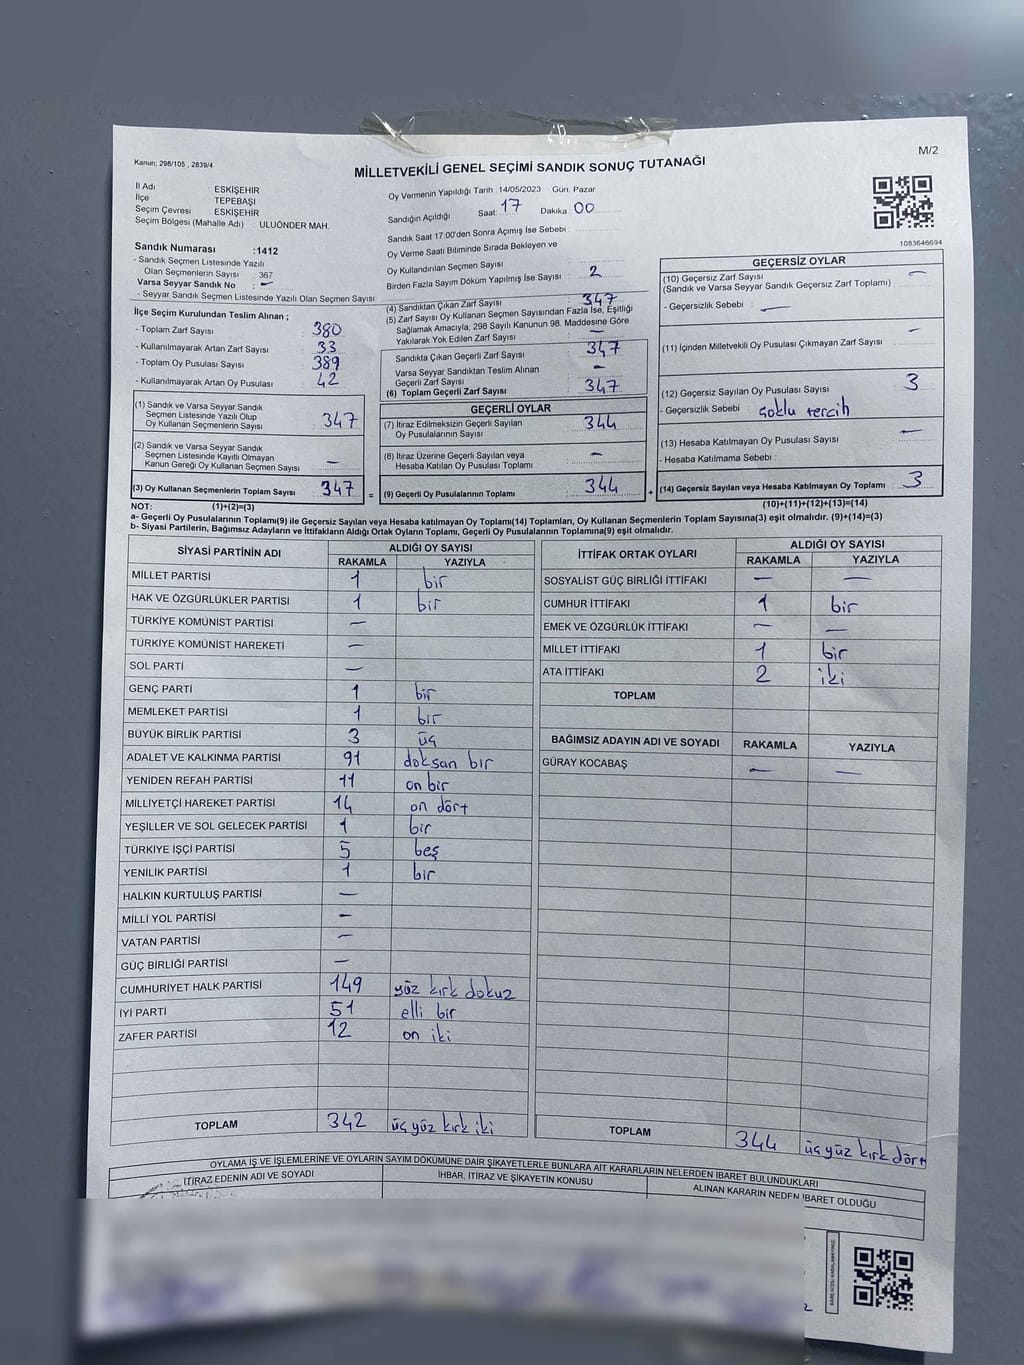 Kanun; 298/105 , 2839/4
M/2
MİLLETVEKİLİ GENEL SEÇİMİ SANDIK SONUÇ TUTANAĞI
İl Adı ESKİŞEHİR
İlçe TEPEBAŞI
Seçim Çevresi : ESKİŞEHİR
Seçim Bölgesi (Mahalle Adı) : ULUÖNDER MAH.
Sandık Numarası :1412
- Sandık Seçmen Listesinde Yazılı
Olan Seçmenlerin Sayısı : 367
Varsa Seyyar Sandık No : —
- Seyyar Sandık Seçmen Listesinde Yazılı Olan Seçmen Sayısı
İlçe Seçim Kurulundan Teslim Alınan ;
- Toplam Zarf Sayısı 380
- Kullanılmayarak Artan Zarf Sayısı 33
- Toplam Oy Pusulası Sayısı 389
- Kullanılmayarak Artan Oy Pusulası 42
(1) Sandık ve Varsa Seyyar Sandık
Seçmen Listesinde Yazılı Olup
Oy Kullanan Seçmenlerin Sayısı 347
(2) Sandık ve Varsa Seyyar Sandık
Seçmen Listesinde Kayıtlı Olmayan
Kanun Gereği Oy Kullanan Seçmen Sayısı —
(3) Oy Kullanan Seçmenlerin Toplam Sayısı 347 =
Oy Vermenin Yapıldığı Tarih : 14/05/2023 Gün: Pazar
Sandığın Açıldığı Saat: 17 Dakika: 00
Sandık Saat 17:00'den Sonra Açımış İse Sebebi :
Oy Verme Saati Bitiminde Sırada Bekleyen ve
Oy Kullandırılan Seçmen Sayısı
Birden Fazla Sayım Döküm Yapılmış İse Sayısı : 2
(4) Sandıktan Çıkan Zarf Sayısı : 347
(5) Zarf Sayısı Oy Kullanan Seçmen Sayısından Fazla İse, Eşitliği
Sağlamak Amacıyla, 298 Sayılı Kanunun 98. Maddesine Göre
Yakılarak Yok Edilen Zarf Sayısı : —
Sandıkta Çıkan Geçerli Zarf Sayısı : 347
Varsa Seyyar Sandıktan Teslim Alınan
Geçerli Zarf Sayısı —
(6) Toplam Geçerli Zarf Sayısı : 347
GEÇERLİ OYLAR
(7) İtiraz Edilmeksizin Geçerli Sayılan
Oy Pusulalarının Sayısı : 344
(8) İtiraz Üzerine Geçerli Sayılan veya
Hesaba Katılan Oy Pusulası Toplamı —
(9) Geçerli Oy Pusulalarının Toplamı : 344 +
1083646694
GEÇERSİZ OYLAR
(10) Geçersiz Zarf Sayısı —
(Sandık ve Varsa Seyyar Sandık Geçersiz Zarf Toplamı)
- Geçersizlik Sebebi : —
(11) İçinden Milletvekili Oy Pusulası Çıkmayan Zarf Sayısı —
(12) Geçersiz Sayılan Oy Pusulası Sayısı 3
- Geçersizlik Sebebi : çoklu tercih
(13) Hesaba Katılmayan Oy Pusulası Sayısı —
- Hesaba Katılmama Sebebi :
(14) Geçersiz Sayılan veya Hesaba Katılmayan Oy Toplamı : 3
NOT: (1)+(2)=(3)
(10)+(11)+(12)+(13)=(14)
a- Geçerli Oy Pusulalarının Toplamı(9) ile Geçersiz Sayılan veya Hesaba katılmayan Oy Toplamı(14) Toplamları, Oy Kullanan Seçmenlerin Toplam Sayısına(3) eşit olmalıdır. (9)+(14)=(3)
b- Siyasi Partilerin, Bağımsız Adayların ve İttifakların Aldığı Ortak Oyların Toplamı, Geçerli Oy Pusulalarının Toplamına(9) eşit olmalıdır.
SİYASİ PARTİNİN ADI ALDIĞI OY SAYISI
RAKAMLA YAZIYLA
MİLLET PARTİSİ 1 bir
HAK VE ÖZGÜRLÜKLER PARTİSİ 1 bir
TÜRKİYE KOMÜNİST PARTİSİ —
TÜRKİYE KOMÜNİST HAREKETİ —
SOL PARTİ —
GENÇ PARTİ 1 bir
MEMLEKET PARTİSİ 1 bir
BÜYÜK BİRLİK PARTİSİ 3 üç
ADALET VE KALKINMA PARTİSİ 91 doksan bir
YENİDEN REFAH PARTİSİ 11 on bir
MİLLİYETÇİ HAREKET PARTİSİ 14 on dört
YEŞİLLER VE SOL GELECEK PARTİSİ 1 bir
TÜRKİYE İŞÇİ PARTİSİ 5 beş
YENİLİK PARTİSİ 1 bir
HALKIN KURTULUŞ PARTİSİ —
MİLLİ YOL PARTİSİ —
VATAN PARTİSİ —
GÜÇ BİRLİĞİ PARTİSİ —
CUMHURİYET HALK PARTİSİ 149 yüz kırk dokuz
İYİ PARTİ 51 elli bir
ZAFER PARTİSİ 12 on iki
TOPLAM 342 üç yüz kırk iki
İTTİFAK ORTAK OYLARI ALDIĞI OY SAYISI
RAKAMLA YAZIYLA
SOSYALİST GÜÇ BİRLİĞİ İTTİFAKI — —
CUMHUR İTTİFAKI 1 bir
EMEK VE ÖZGÜRLÜK İTTİFAKI — —
MİLLET İTTİFAKI 1 bir
ATA İTTİFAKI 2 iki
TOPLAM
BAĞIMSIZ ADAYIN ADI VE SOYADI RAKAMLA YAZIYLA
GÜRAY KOCABAŞ — —
TOPLAM 344 üç yüz kırk dört
OYLAMA İŞ VE İŞLEMLERİNE VE OYLARIN SAYIM DÖKÜMÜNE DAİR ŞİKAYETLERLE BUNLARA AİT KARARLARIN NELERDEN İBARET BULUNDUKLARI
İTİRAZ EDENİN ADI VE SOYADI İHBAR, İTİRAZ VE ŞİKAYETİN KONUSU ALINAN KARARIN NEDEN İBARET OLDUĞU